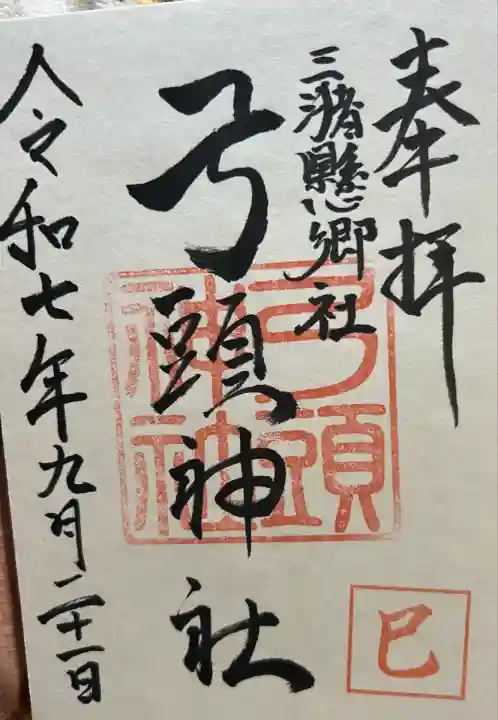 奉拝
三潴縣郷社
弓頭神社
弓頭
神社
令和七年九月二十一日
巳